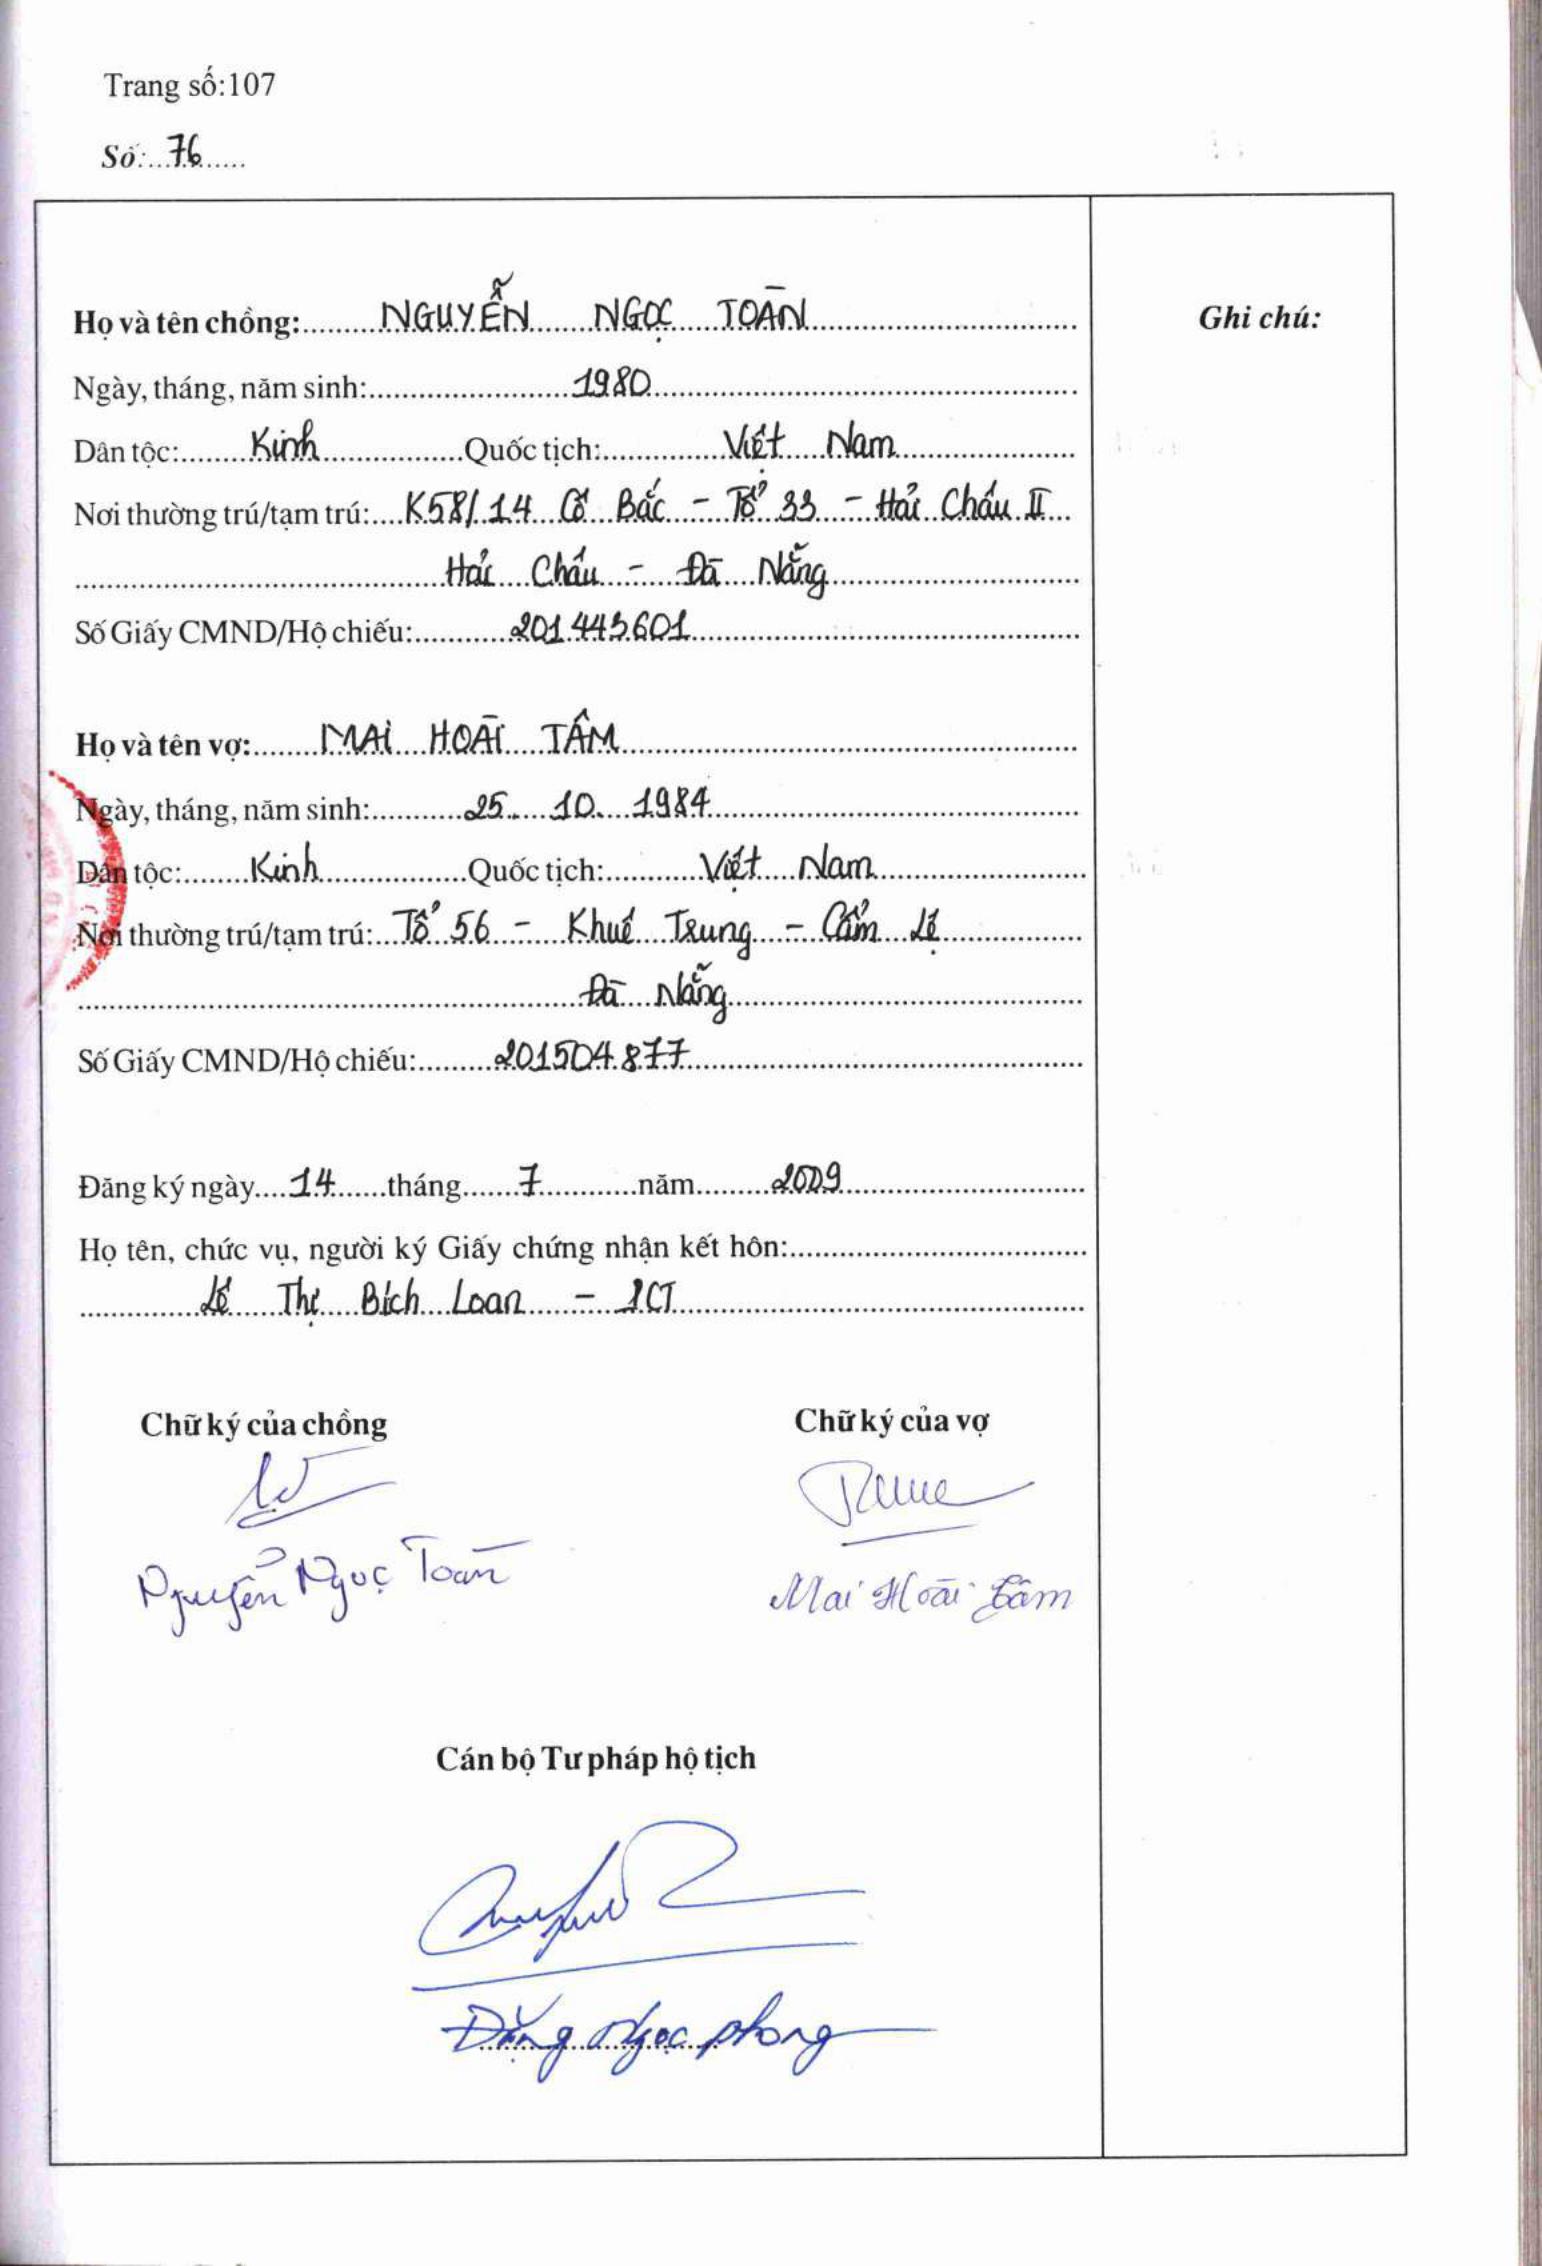 Trang số:107
Số: 76
Họ và tên chồng: NGUYỄN NGỌC TOÀN
Ghi chú:
Ngày, tháng, năm sinh: 1980
Dân tộc: Kinh Quốc tịch: Việt Nam
Nơi thường trú/tạm trú: K58/14 Cô Bắc - Tổ 33 - Hải Châu II
Hải Châu - Đà Nẵng
Số Giấy CMND/Hộ chiếu: 201443601
Họ và tên vợ: MAI HOÀI TÂM
Ngày, tháng, năm sinh: 25. 10. 1984
Dân tộc: Kinh Quốc tịch: Việt Nam
Nơi thường trú/tạm trú: Tổ 56 - Khuê Trung - Cẩm Lệ
Đà Nẵng
Số Giấy CMND/Hộ chiếu: 201504877
Đăng ký ngày 14 tháng 7 năm 2009
Họ tên, chức vụ, người ký Giấy chứng nhận kết hôn:
Lê Thị Bích Loan - PCT
Chữ ký của chồng Chữ ký của vợ
Nguyễn Ngọc Toàn Mai Hoài Tâm
Cán bộ Tư pháp hộ tịch
Đặng Ngọc Phong